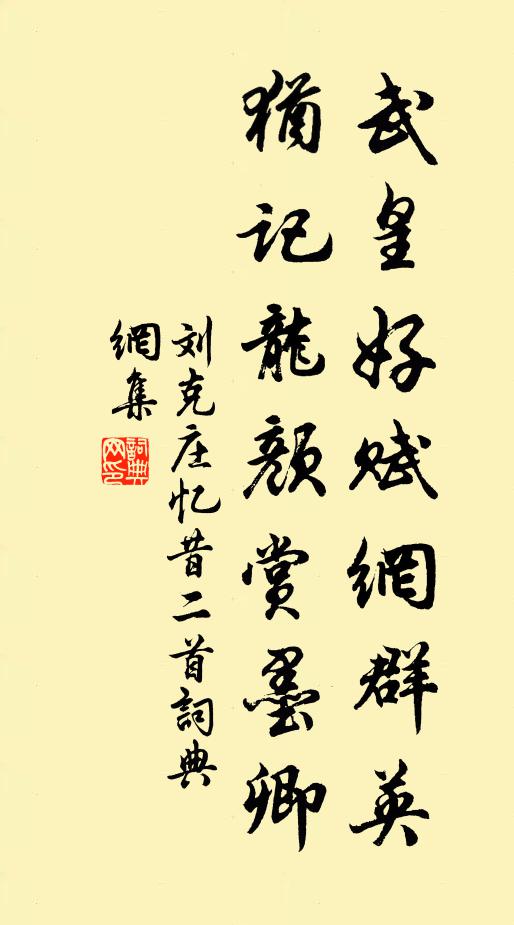 武皇好赋網群英
猶记龍颜赏墨卿
刘克庄忆昔二首詞典
網集
詞典
网印